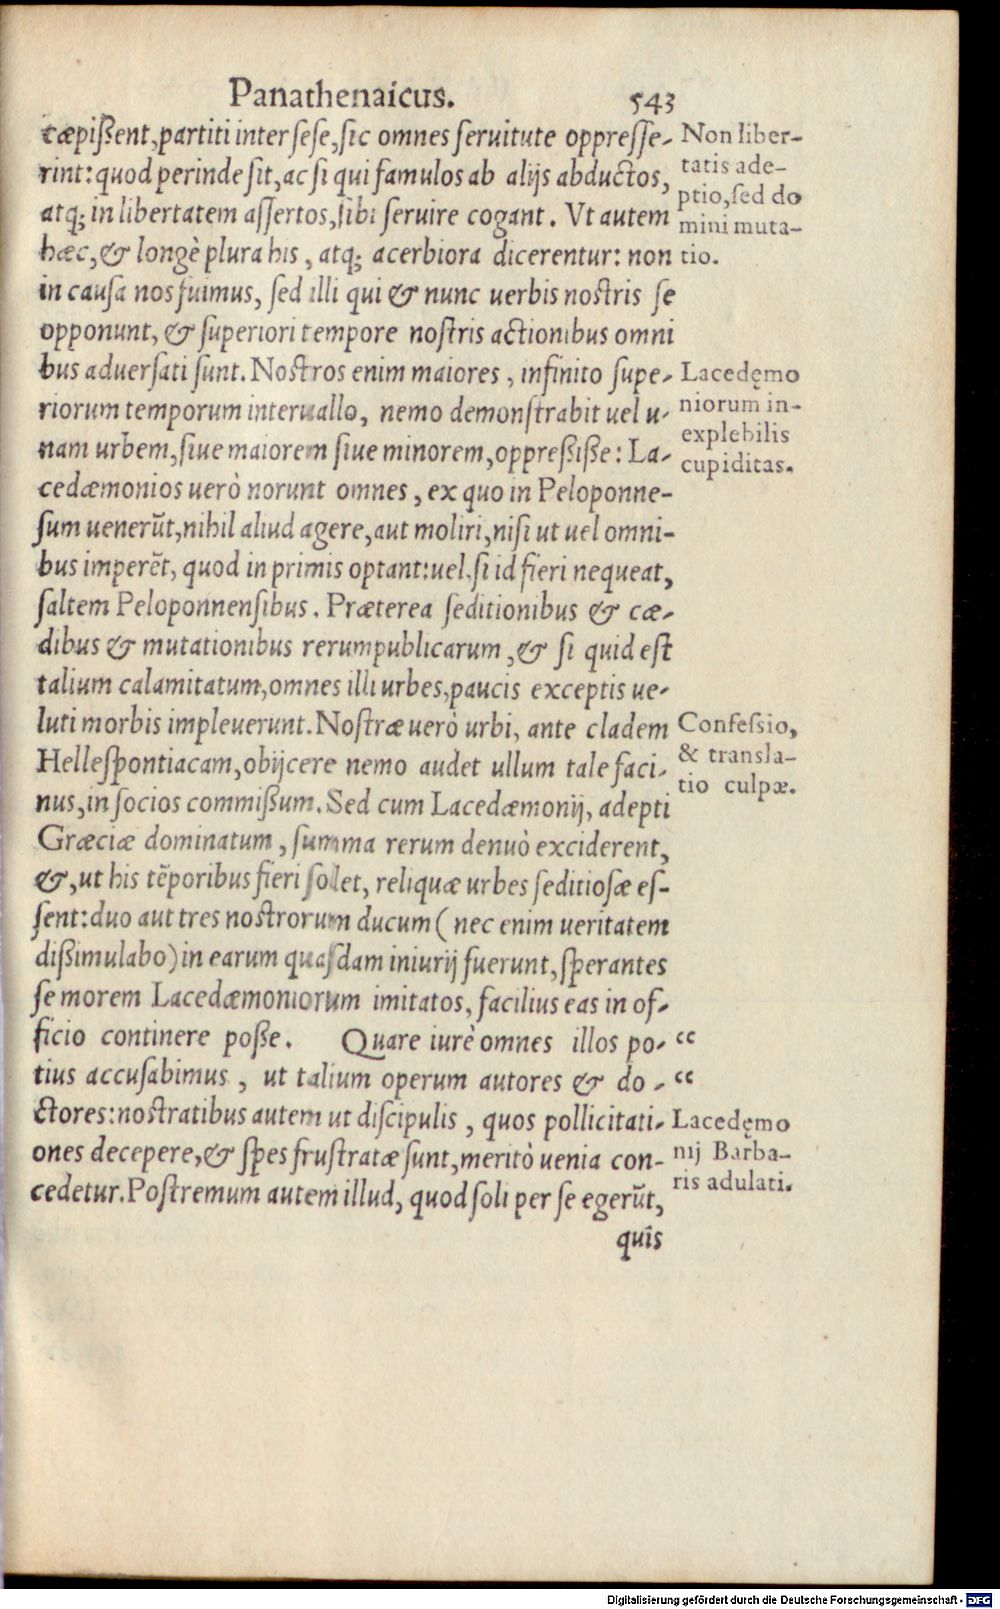 Panathenaicus. 543
cæpißent, partiti inter ſeſe, ſic omnes ſeruitute oppreſſe-
rint: quod perinde ſit, ac ſi qui famulos ab alijs abductos,
atq; in libertatem aſſertos, ſibi ſeruire cogant. Vt autem
hæc, & longè plura his, atq; acerbiora dicerentur: non
in cauſa nos fuimus, ſed illi qui & nunc uerbis noſtris ſe
opponunt, & ſuperiori tempore noſtris actionibus omni
bus aduerſati ſunt. Noſtros enim maiores, infinito ſupe-
riorum temporum interuallo, nemo demonſtrabit uel u-
nam urbem, ſiue maiorem ſiue minorem, oppreßiße: La-
cedæmonios uerò norunt omnes, ex quo in Peloponne-
ſum uenerũt, nihil aliud agere, aut moliri, niſi ut uel omni-
bus imperẽt, quod in primis optant: uel, ſi id fieri nequeat,
ſaltem Peloponnenſibus. Præterea ſeditionibus & cæ-
dibus & mutationibus rerumpublicarum, & ſi quid eſt
talium calamitatum, omnes illi urbes, paucis exceptis ue-
luti morbis impleuerunt. Noſtræ uerò urbi, ante cladem
Helleſpontiacam, obijcere nemo audet ullum tale faci-
nus, in ſocios commißum. Sed cum Lacedæmonij, adepti
Græciæ dominatum, ſumma rerum denuò exciderent,
&, ut his tẽporibus fieri ſolet, reliquæ urbes ſeditioſæ eſ-
ſent: duo aut tres noſtrorum ducum (nec enim ueritatem
dißimulabo) in earum quaſdam iniurij fuerunt, ſperantes
ſe morem Lacedæmoniorum imitatos, facilius eas in of-
ficio continere poße. Quare iurè omnes illos po- “
tius accuſabimus, ut talium operum autores & do- “
ctores: noſtratibus autem ut diſcipulis, quos pollicitati-
ones decepere, & ſpes fruſtratæ ſunt, meritò uenia con-
cedetur. Poſtremum autem illud, quod ſoli per ſe egerũt,
quîs
Non liber-
tatis ade-
ptio, ſed do
mini muta-
tio.
Lacedęmo
niorum in-
explebilis
cupiditas.
Confeſsio,
& transla-
tio culpæ.
Lacedęmo
nij Barba-
ris adulati.
Digitalisierung gefördert durch die Deutsche Forschungsgemeinschaft - DFG